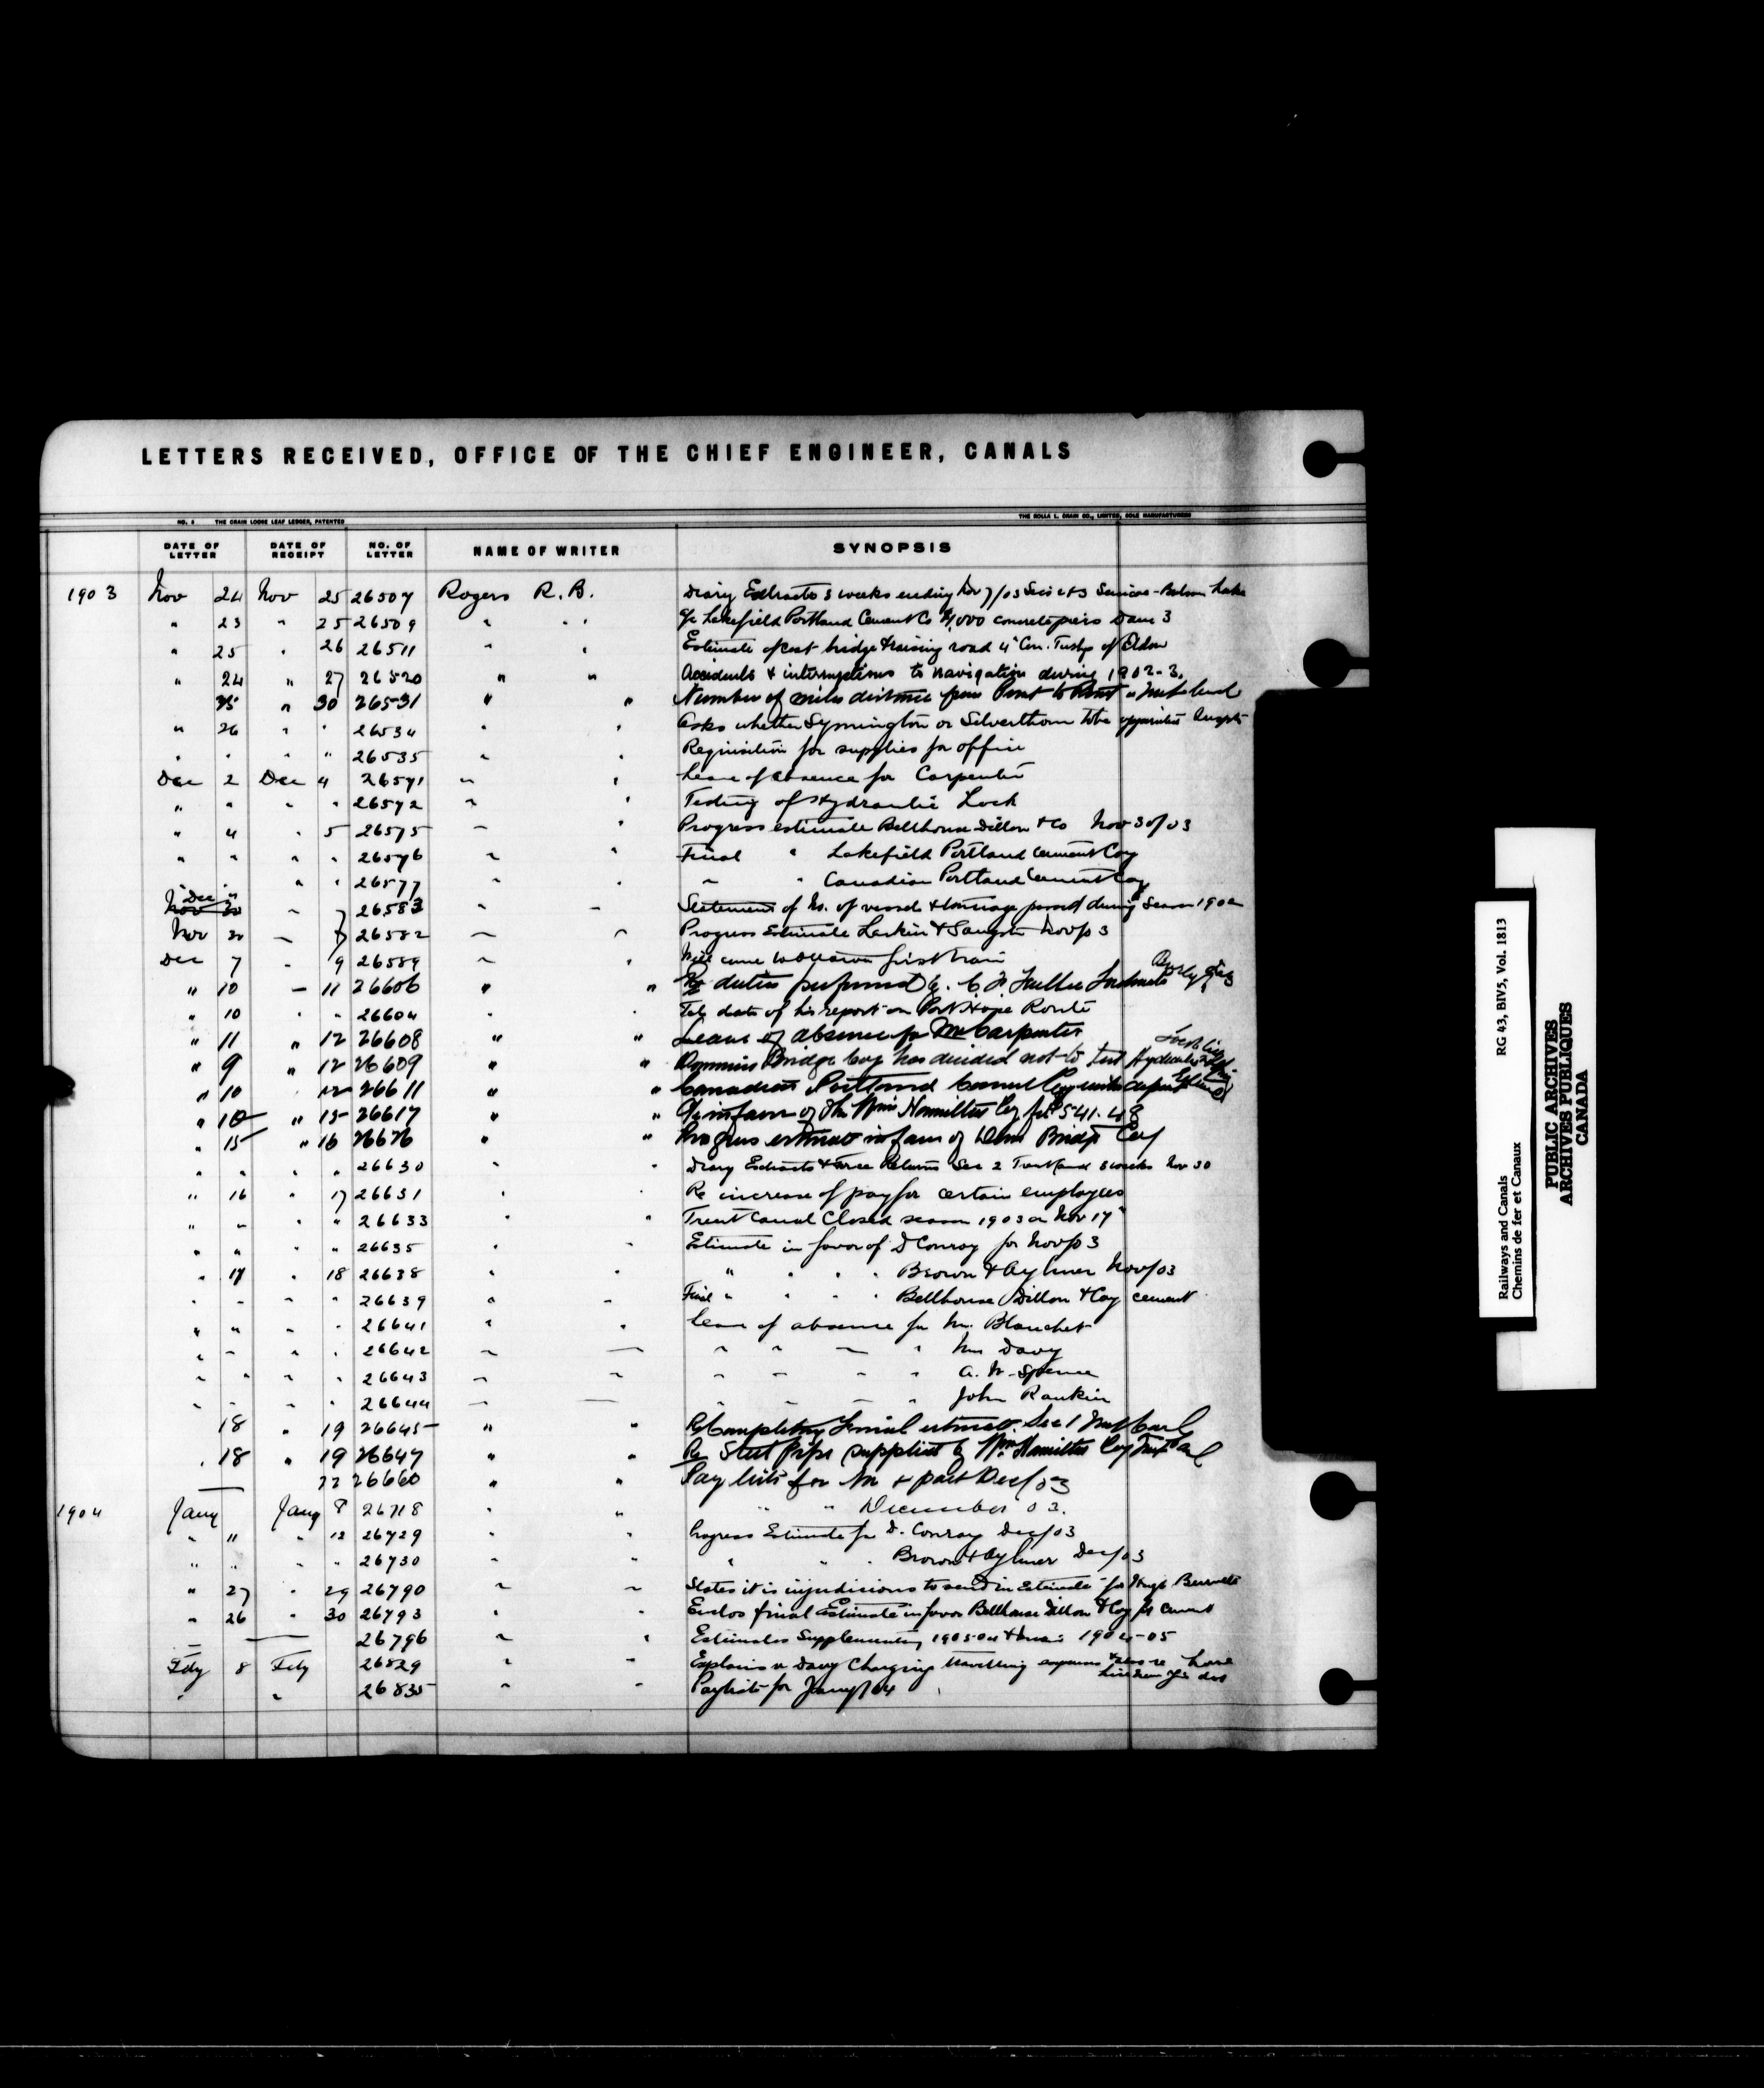 LETTERS RECEIVED, OFFICE OF THE CHIEF ENGINEER, CANALS
NO. 2 THE CRAIN LOOSE LEAF LEDGER, PATENTED THE ROLLA L. CRAIN CO., LIMITED, SOLE MANUFACTURERS
DATE OF LETTER DATE OF RECEIPT NO. OF LETTER NAME OF WRITER SYNOPSIS
1903 Nov 24 Nov 25 26507 Rogers R. B. Diary Extracts 3 weeks ending Nov 7/03 Secs 2 & 3 Simcoe-Balsam Lake
" 23 " 25 26509 " " a/c Lakefield Portland Cement Co concrete piers Dam 3
" 25 " 26 26511 " " Estimate of cost bridge & raising road 4" Con. Twsp of Eldon
" 24 " 27 26520 " " Accidents & interruptions to navigation during 1902-3.
25 " 30 26531 " " Number of miles distance from Point to Point
" 26 " " 26534 " " Asks whether Symington or Silverthorn to be appointed
" " " " 26535 " " Requisition for supplies for office
Dec 2 Dec 4 26571 " " Leave of absence for Carpenter
" " " " 26572 " " Testing of Hydraulic Lock
" 4 " 5 26575 " " Progress estimate Bellhouse Dillon & Co Nov 30/03
" " " " 26576 " " Final " Lakefield Portland Cement Coy
" " " " 26577 " " " " Canadian Portland Cement Coy
Dec " " 7 26583 " " Statement of No. of vessels & tonnage passed during Season 1902
Nov 30 " 7 26582 " " Progress Estimate Larkin & Sangster Nov/03
Dec 7 " 9 26589 " " Will come to Ottawa first train
" 10 " 11 26606 " " Re duties performed by
" 10 " " 26604 " " date of his report on Port Hope Route
" 11 " 12 26608 " " Leave of absence for Mr Carpenter
" 9 " 12 26609 " " Dominion Bridge Coy has decided not to test Hydraulic
" 10 12 26611 " Canadian Portland Cement Coy
" 10 " 15 26617 " " a/c in favor of The Wm Hamilton Coy for $541.48
" 15 " 16 26626 " " Progress estimate in favor of Dom Bridge Coy
" " " " 26630 " " Diary Extracts & Force Returns Sec 2 Trent Canal 3 weeks Nov 30
" 16 " 17 26631 " " Re increase of pay for certain employees
" " " " 26633 " " Trent Canal Closed season 1903 on Nov 17"
" " " " 26635 " " Estimate in favor of D Conroy for Nov/03
" 17 " 18 26638 " " " " " " Brown & Aylmer Nov/03
" " " " 26639 " " Final " " " " Bellhouse Dillon & Coy cement
" " " " 26641 " " Leave of absence for Mr. Blanchet
" " " " 26642 " " " " " " Wm Davy
" " " " 26643 " " " " " " A. W. Spence
" " " " 26644 " " " " " " John Rankin
18 " 19 26645 " " Re Completing Final estimate. Sec 1 Trent Canal
" 18 " 19 26647 " " Re Steel Pipe supplied by Wm Hamilton Coy
22 26660 " " Pay lists for part Dec/03
1904 Jany Jany 8 26718 " " " " December 03.
" 11 " 12 26729 " " Progress Estimate for D. Conroy Dec/03
" " " " 26730 " " " " " Brown & Aylmer Dec/03
" 27 " 29 26790 " " States it is injudicious to send in Estimate for
" 26 " 30 26793 " " Enclos final Estimate in favor Bellhouse Dillon & Coy for Cement
26796 " " Estimates Supplementary 1903-04 & 1904-05
Feby 8 Feby 26829 " " Explains re Davy Charging travelling expenses
" " 26835 " " Paylists for Jany/04
Railways and Canals RG 43, BIV5, Vol. 1813
Chemins de fer et Canaux
PUBLIC ARCHIVES
ARCHIVES PUBLIQUES
CANADA